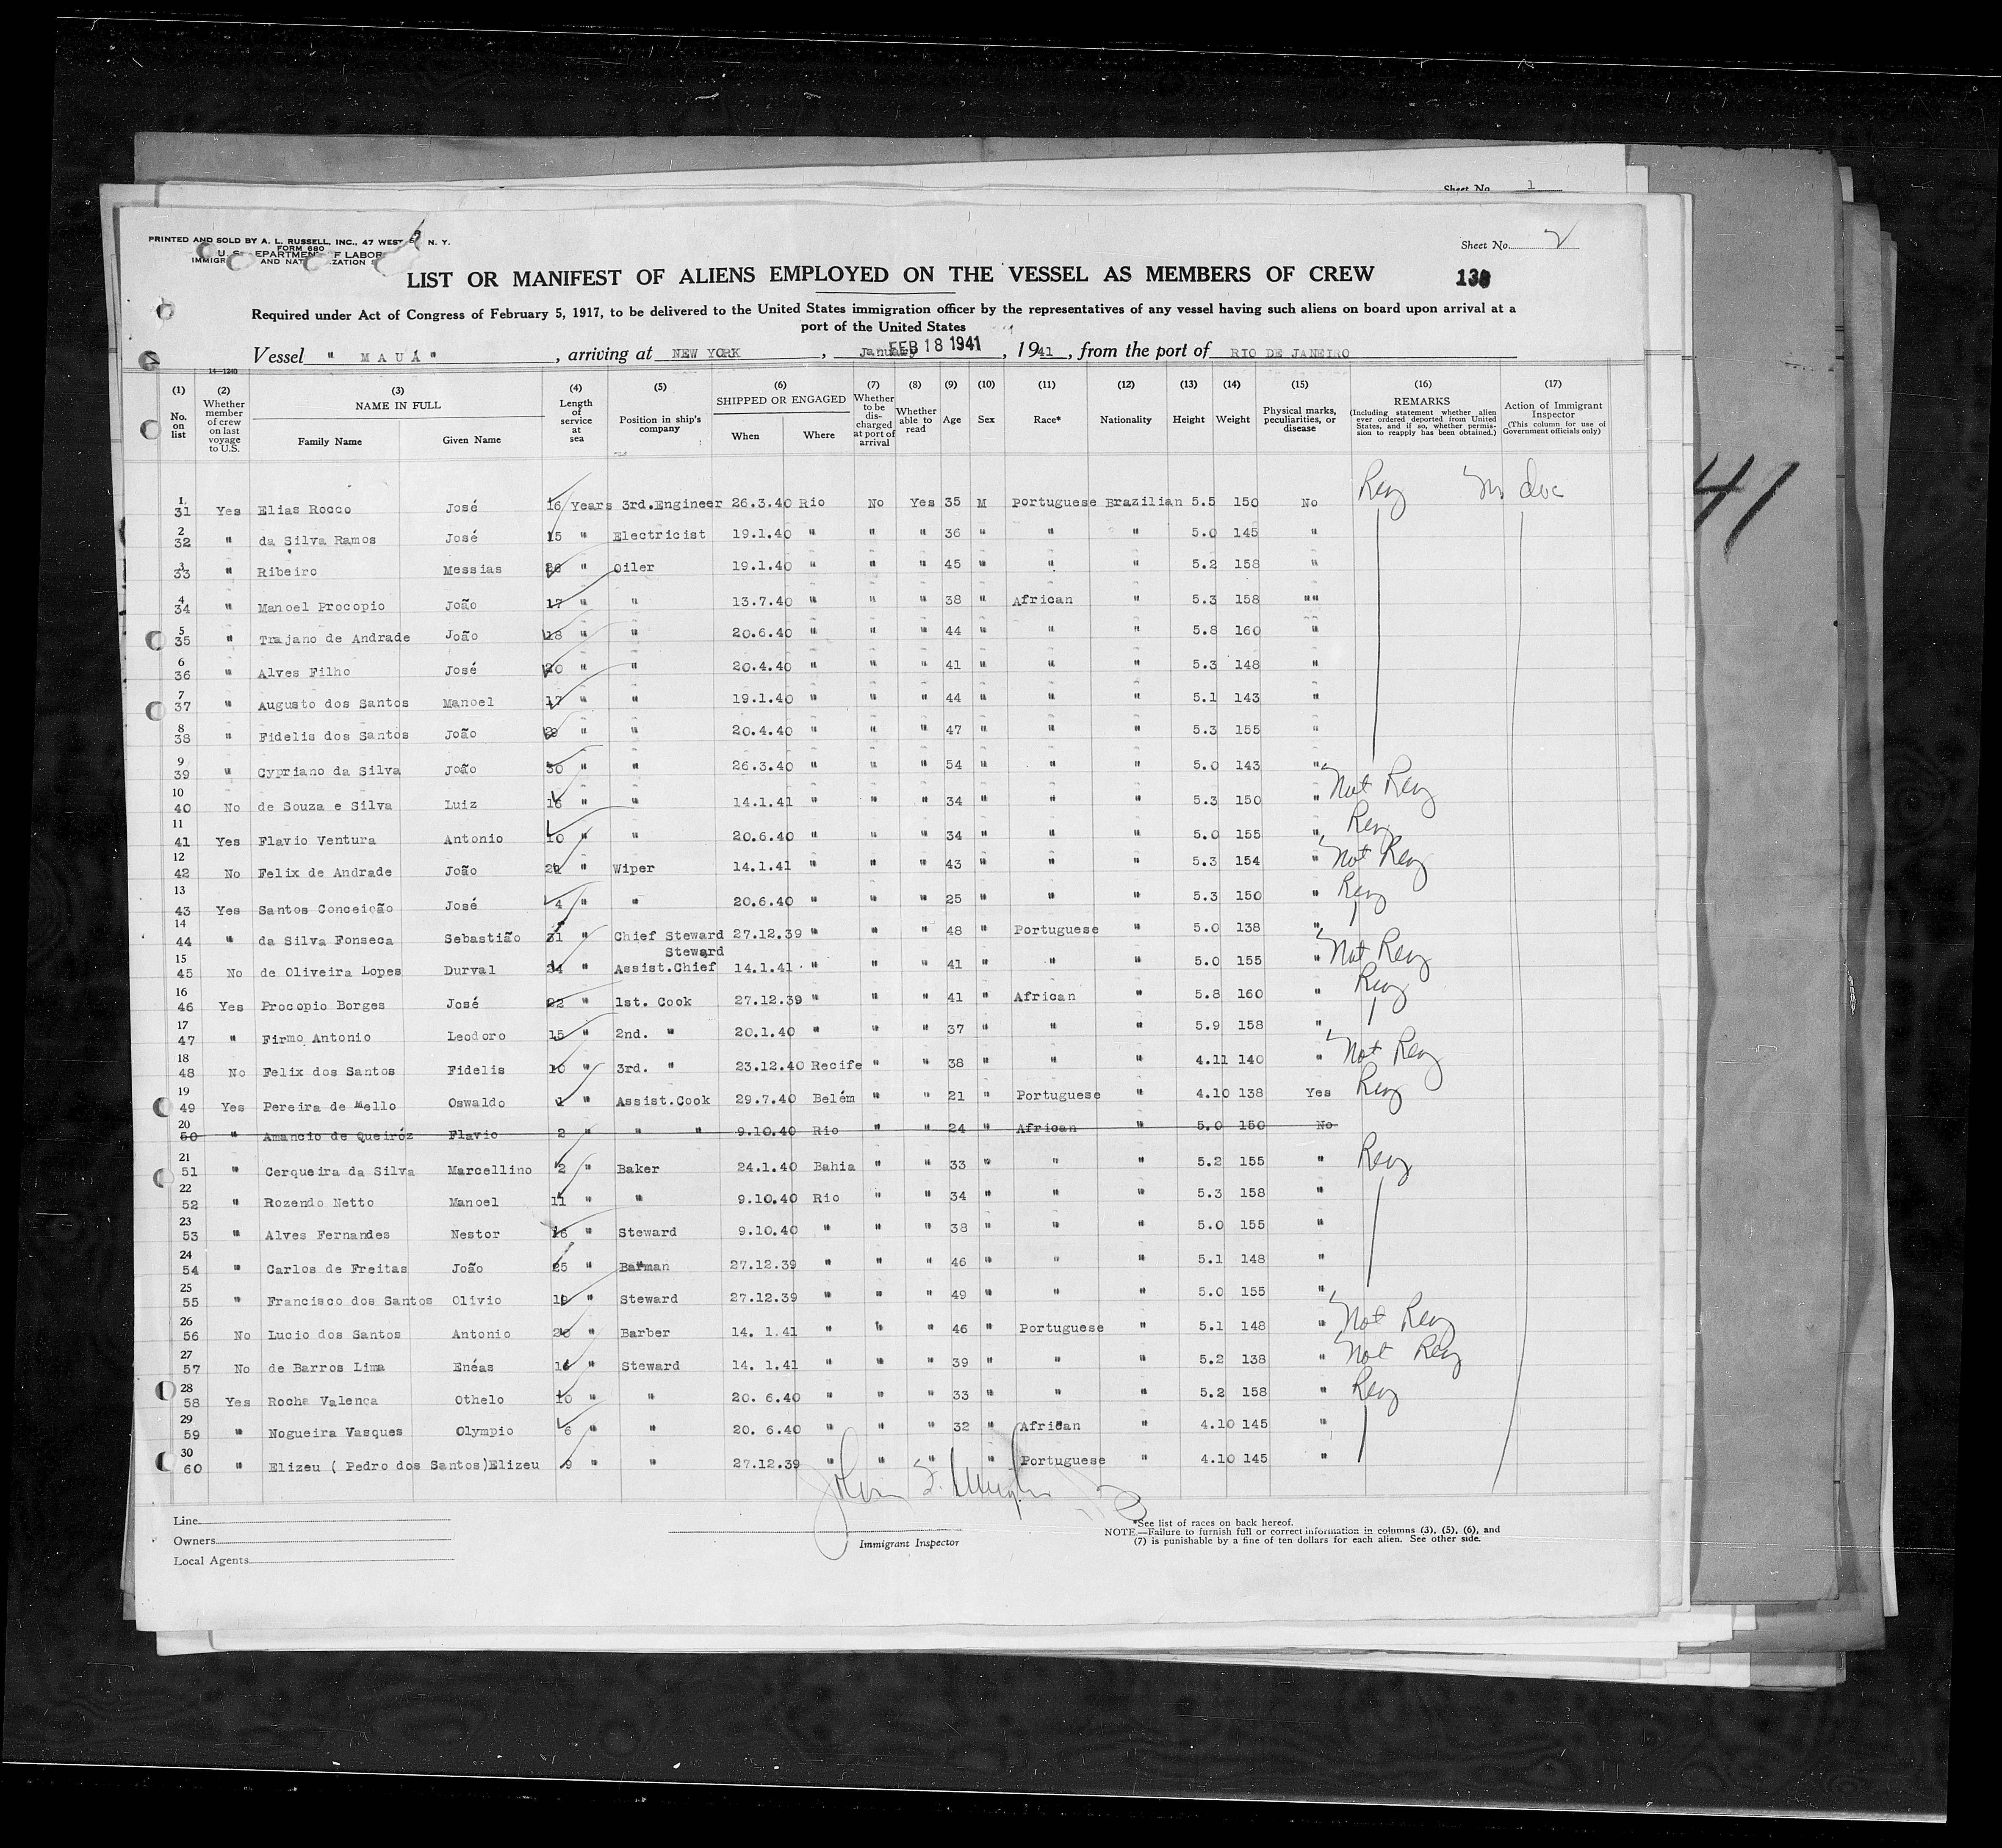 Sheet No. 1
PRINTED AND SOLD BY A. L. RUSSELL, INC., 47 WEST N. Y.
FORM 680
Sheet No. 2
LIST OR MANIFEST OF ALIENS EMPLOYED ON THE VESSEL AS MEMBERS OF CREW
Required under Act of Congress of February 5, 1917, to be delivered to the United States immigration officer by the representatives of any vessel having such aliens on board upon arrival at a
port of the United States
Vessel " MAUÁ" , arriving at NEW YORK , January FEB 18 1941 , 1941 , from the port of RIO DE JANEIRO
14—1240
(1) No. on list
(2) Whether member of crew on last voyage to U.S.
(3) NAME IN FULL Family Name Given Name
(4) Length of service at sea
(5) Position in ship's company
(6) SHIPPED OR ENGAGED When Where
(7) Whether to be discharged at port of arrival
(8) Whether able to read
(9) Age
(10) Sex
(11) Race*
(12) Nationality
(13) Height
(14) Weight
(15) Physical marks, peculiarities, or disease
(16) REMARKS (Including statement whether alien ever ordered deported from United States, and if so, whether permission to reapply has been obtained.)
(17) Action of Immigrant Inspector (This column for use of Government officials only)
1 31 Yes Elias Rocco José 16 Years 3rd.Engineer 26.3.40 Rio No Yes 35 M Portuguese Brazilian 5.5 150 No
2 32 " da Silva Ramos José 15 " Electricist 19.1.40 " " " 36 " " " 5.0 145 "
3 33 " Ribeiro Messias " Oiler 19.1.40 " " " 45 " " " 5.2 158 "
4 34 " Manoel Procopio João 17 " " 13.7.40 " " " 38 " African " 5.3 158 ""
5 35 " Trajano de Andrade João 18 " " 20.6.40 " " " 44 " " " 5.8 160 "
6 36 " Alves Filho José 20 " " 20.4.40 " " " 41 " " " 5.3 148 "
7 37 " Augusto dos Santos Manoel 17 " " 19.1.40 " " " 44 " " " 5.1 143 "
8 38 " Fidelis dos Santos João " " 20.4.40 " " " 47 " " " 5.3 155 "
9 39 " Cypriano da Silva João 30 " " 26.3.40 " " " 54 " " " 5.0 143 "
10 40 No de Souza e Silva Luiz 16 " " 14.1.41 " " " 34 " " " 5.3 150 " Not Reg
11 41 Yes Flavio Ventura Antonio 10 " " 20.6.40 " " " 34 " " " 5.0 155 " Reg
12 42 No Felix de Andrade João " Wiper 14.1.41 " " " 43 " " " 5.3 154 " Not Reg
13 43 Yes Santos Conceição José 4 " " 20.6.40 " " " 25 " " " 5.3 150 " Reg
14 44 " da Silva Fonseca Sebastião 31 " Chief Steward 27.12.39 " " " 48 " Portuguese " 5.0 138 "
Steward
15 45 No de Oliveira Lopes Durval 24 " Assist.Chief 14.1.41 " " " 41 " " " 5.0 155 " Not Reg
16 46 Yes Procopio Borges José 22 " 1st. Cook 27.12.39 " " " 41 " African " 5.8 160 " Reg
17 47 " Firmo Antonio Leodoro 15 " 2nd. " 20.1.40 " " " 37 " " " 5.9 158 "
18 48 No Felix dos Santos Fidelis 10 " 3rd. " 23.12.40 Recife " " 38 " " " 4.11 140 " Not Reg
19 49 Yes Pereira de Mello Oswaldo 1 " Assist.Cook 29.7.40 Belém " " 21 " Portuguese " 4.10 138 Yes Reg
20 50 " Amancio de Queiróz Flavio 2 " " " 9.10.40 Rio " " 24 " African " 5.0 150 No
21 51 " Cerqueira da Silva Marcellino 2 " Baker 24.1.40 Bahia " " 33 " " " 5.2 155 " Reg
22 52 " Rozendo Netto Manoel 11 " " 9.10.40 Rio " " 34 " " " 5.3 158 "
23 53 " Alves Fernandes Nestor 16 " Steward 9.10.40 " " " 38 " " " 5.0 155 "
24 54 " Carlos de Freitas João 25 " Barman 27.12.39 " " " 46 " " " 5.1 148 "
25 55 " Francisco dos Santos Olivio " Steward 27.12.39 " " " 49 " " " 5.0 155 "
26 56 No Lucio dos Santos Antonio 20 " Barber 14. 1.41 " " " 46 " Portuguese " 5.1 148 " Not Reg
27 57 No de Barros Lima Enéas " Steward 14. 1.41 " " " 39 " " " 5.2 138 " Not Reg
28 58 Yes Rocha Valença Othelo 10 " " 20. 6.40 " " " 33 " " " 5.2 158 " Reg
29 59 " Nogueira Vasques Olympio 6 " " 20. 6.40 " " " 32 " African " 4.10 145 "
30 60 " Elizeu ( Pedro dos Santos)Elizeu 9 " " 27.12.39 " " " " Portuguese " 4.10 145 "
Line
Owners
Local Agents
Immigrant Inspector
*See list of races on back hereof.
NOTE.—Failure to furnish full or correct information in columns (3), (5), (6), and
(7) is punishable by a fine of ten dollars for each alien. See other side.
41